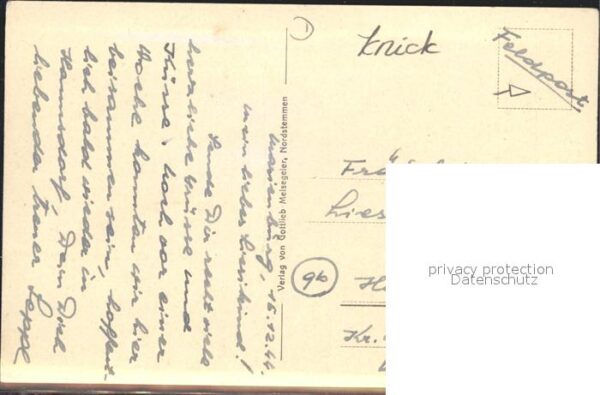 Marienburg, 15.12.44.
mein liebes Liesekind!
Sende Dir recht viele
herzliche Grüsse und
Küsse. Noch vor einer
Woche konnten wir hier
beisammen sein, hoffent-
lich bald wieder in
Hannsdorf, Dein Dich
liebender treuer Seppl
Verlag von Gottlieb Meisegeier, Nordstemmen
Knick
Feldpost
9b
Kr.
privacy protection
Datenschutz